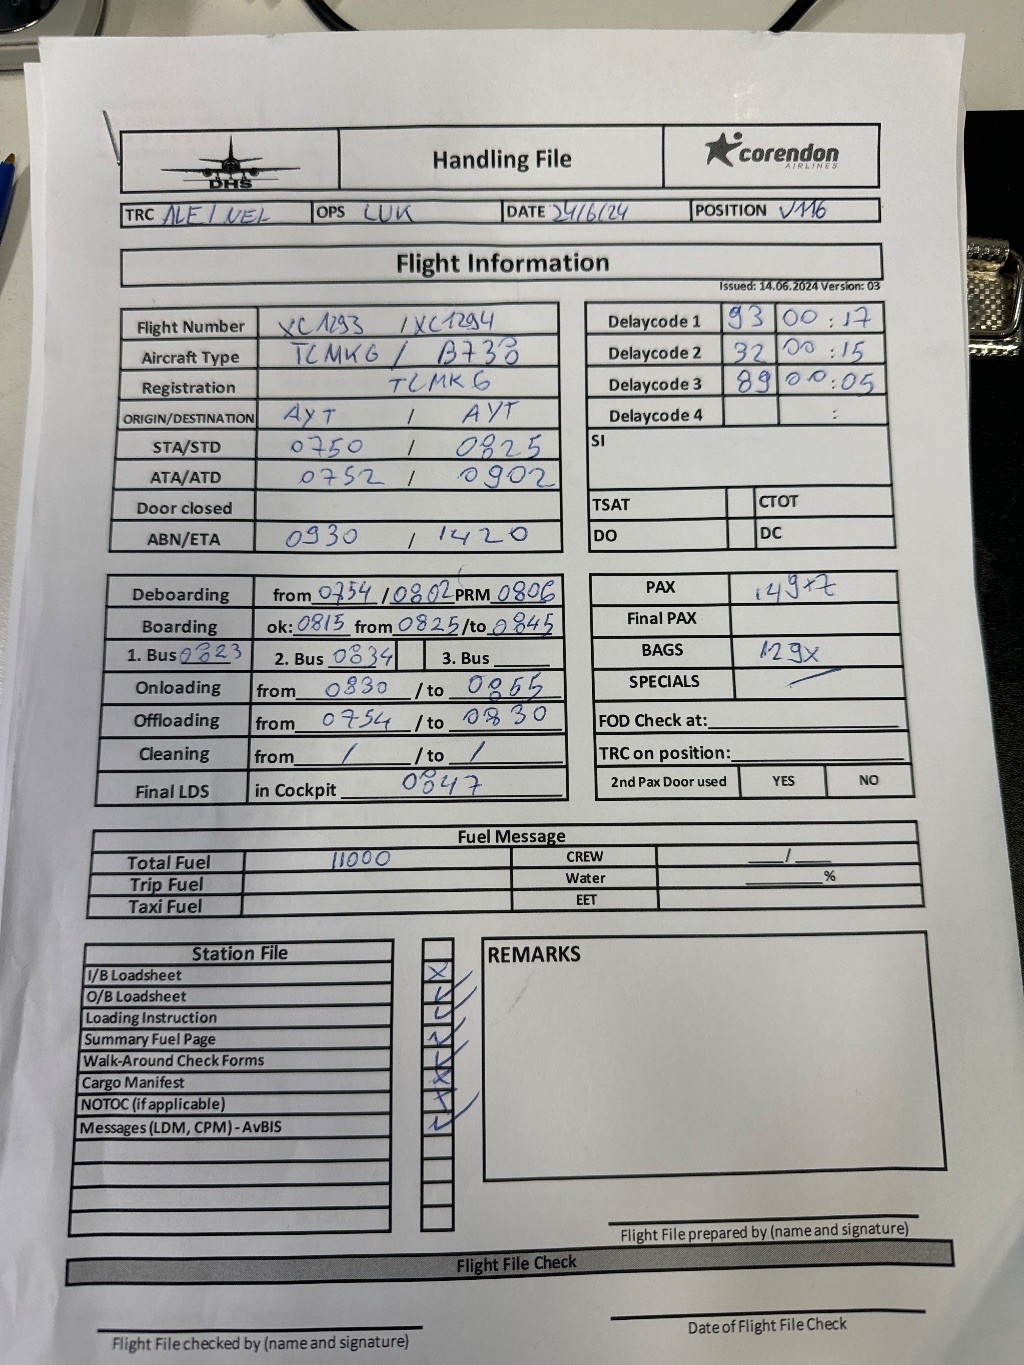 DHS
Handling File
corendon
AIRLINES
TRC ALE / NEL OPS LUK DATE 24/6/24 POSITION V116
Flight Information
Issued: 14.06.2024 Version: 03
Flight Number XC1293 / XC1294
Aircraft Type TCMKG / B738
Registration TCMKG
ORIGIN/DESTINATION AYT / AYT
STA/STD 0750 / 0825
ATA/ATD 0752 / 0902
Door closed
ABN/ETA 0930 / 1420
Delaycode 1 93 00 : 17
Delaycode 2 32 00 : 15
Delaycode 3 89 00 : 05
Delaycode 4 :
SI
TSAT CTOT
DO DC
Deboarding from 0754 / 0802 PRM 0806
Boarding ok: 0815 from 0825 /to 0845
1. Bus 0823 2. Bus 0834 3. Bus
Onloading from 0830 / to 0855
Offloading from 0754 / to 0830
Cleaning from / / to /
Final LDS in Cockpit 0847
PAX 149+7
Final PAX
BAGS 129x
SPECIALS
FOD Check at:
TRC on position:
2nd Pax Door used YES NO
Fuel Message
Total Fuel 11000 CREW /
Trip Fuel Water %
Taxi Fuel EET
Station File
I/B Loadsheet
O/B Loadsheet
Loading Instruction
Summary Fuel Page
Walk-Around Check Forms
Cargo Manifest
NOTOC (if applicable)
Messages (LDM, CPM) - AvBIS
REMARKS
Flight File prepared by (name and signature)
Flight File Check
Flight File checked by (name and signature)
Date of Flight File Check